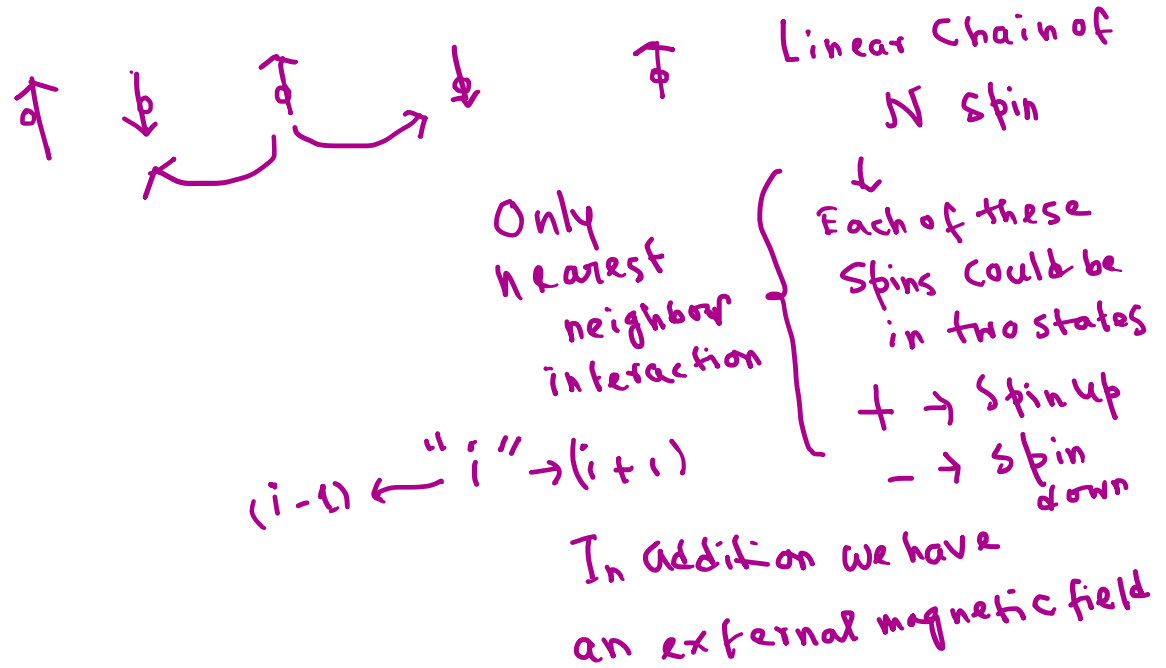 Linear Chain of
N spin
Each of these
Spins could be
in two states
+ → Spin up
- → Spin
down
Only
nearest
neighbour
interaction
(i-1) ← "i" → (i+1)
In addition we have
an external magnetic field